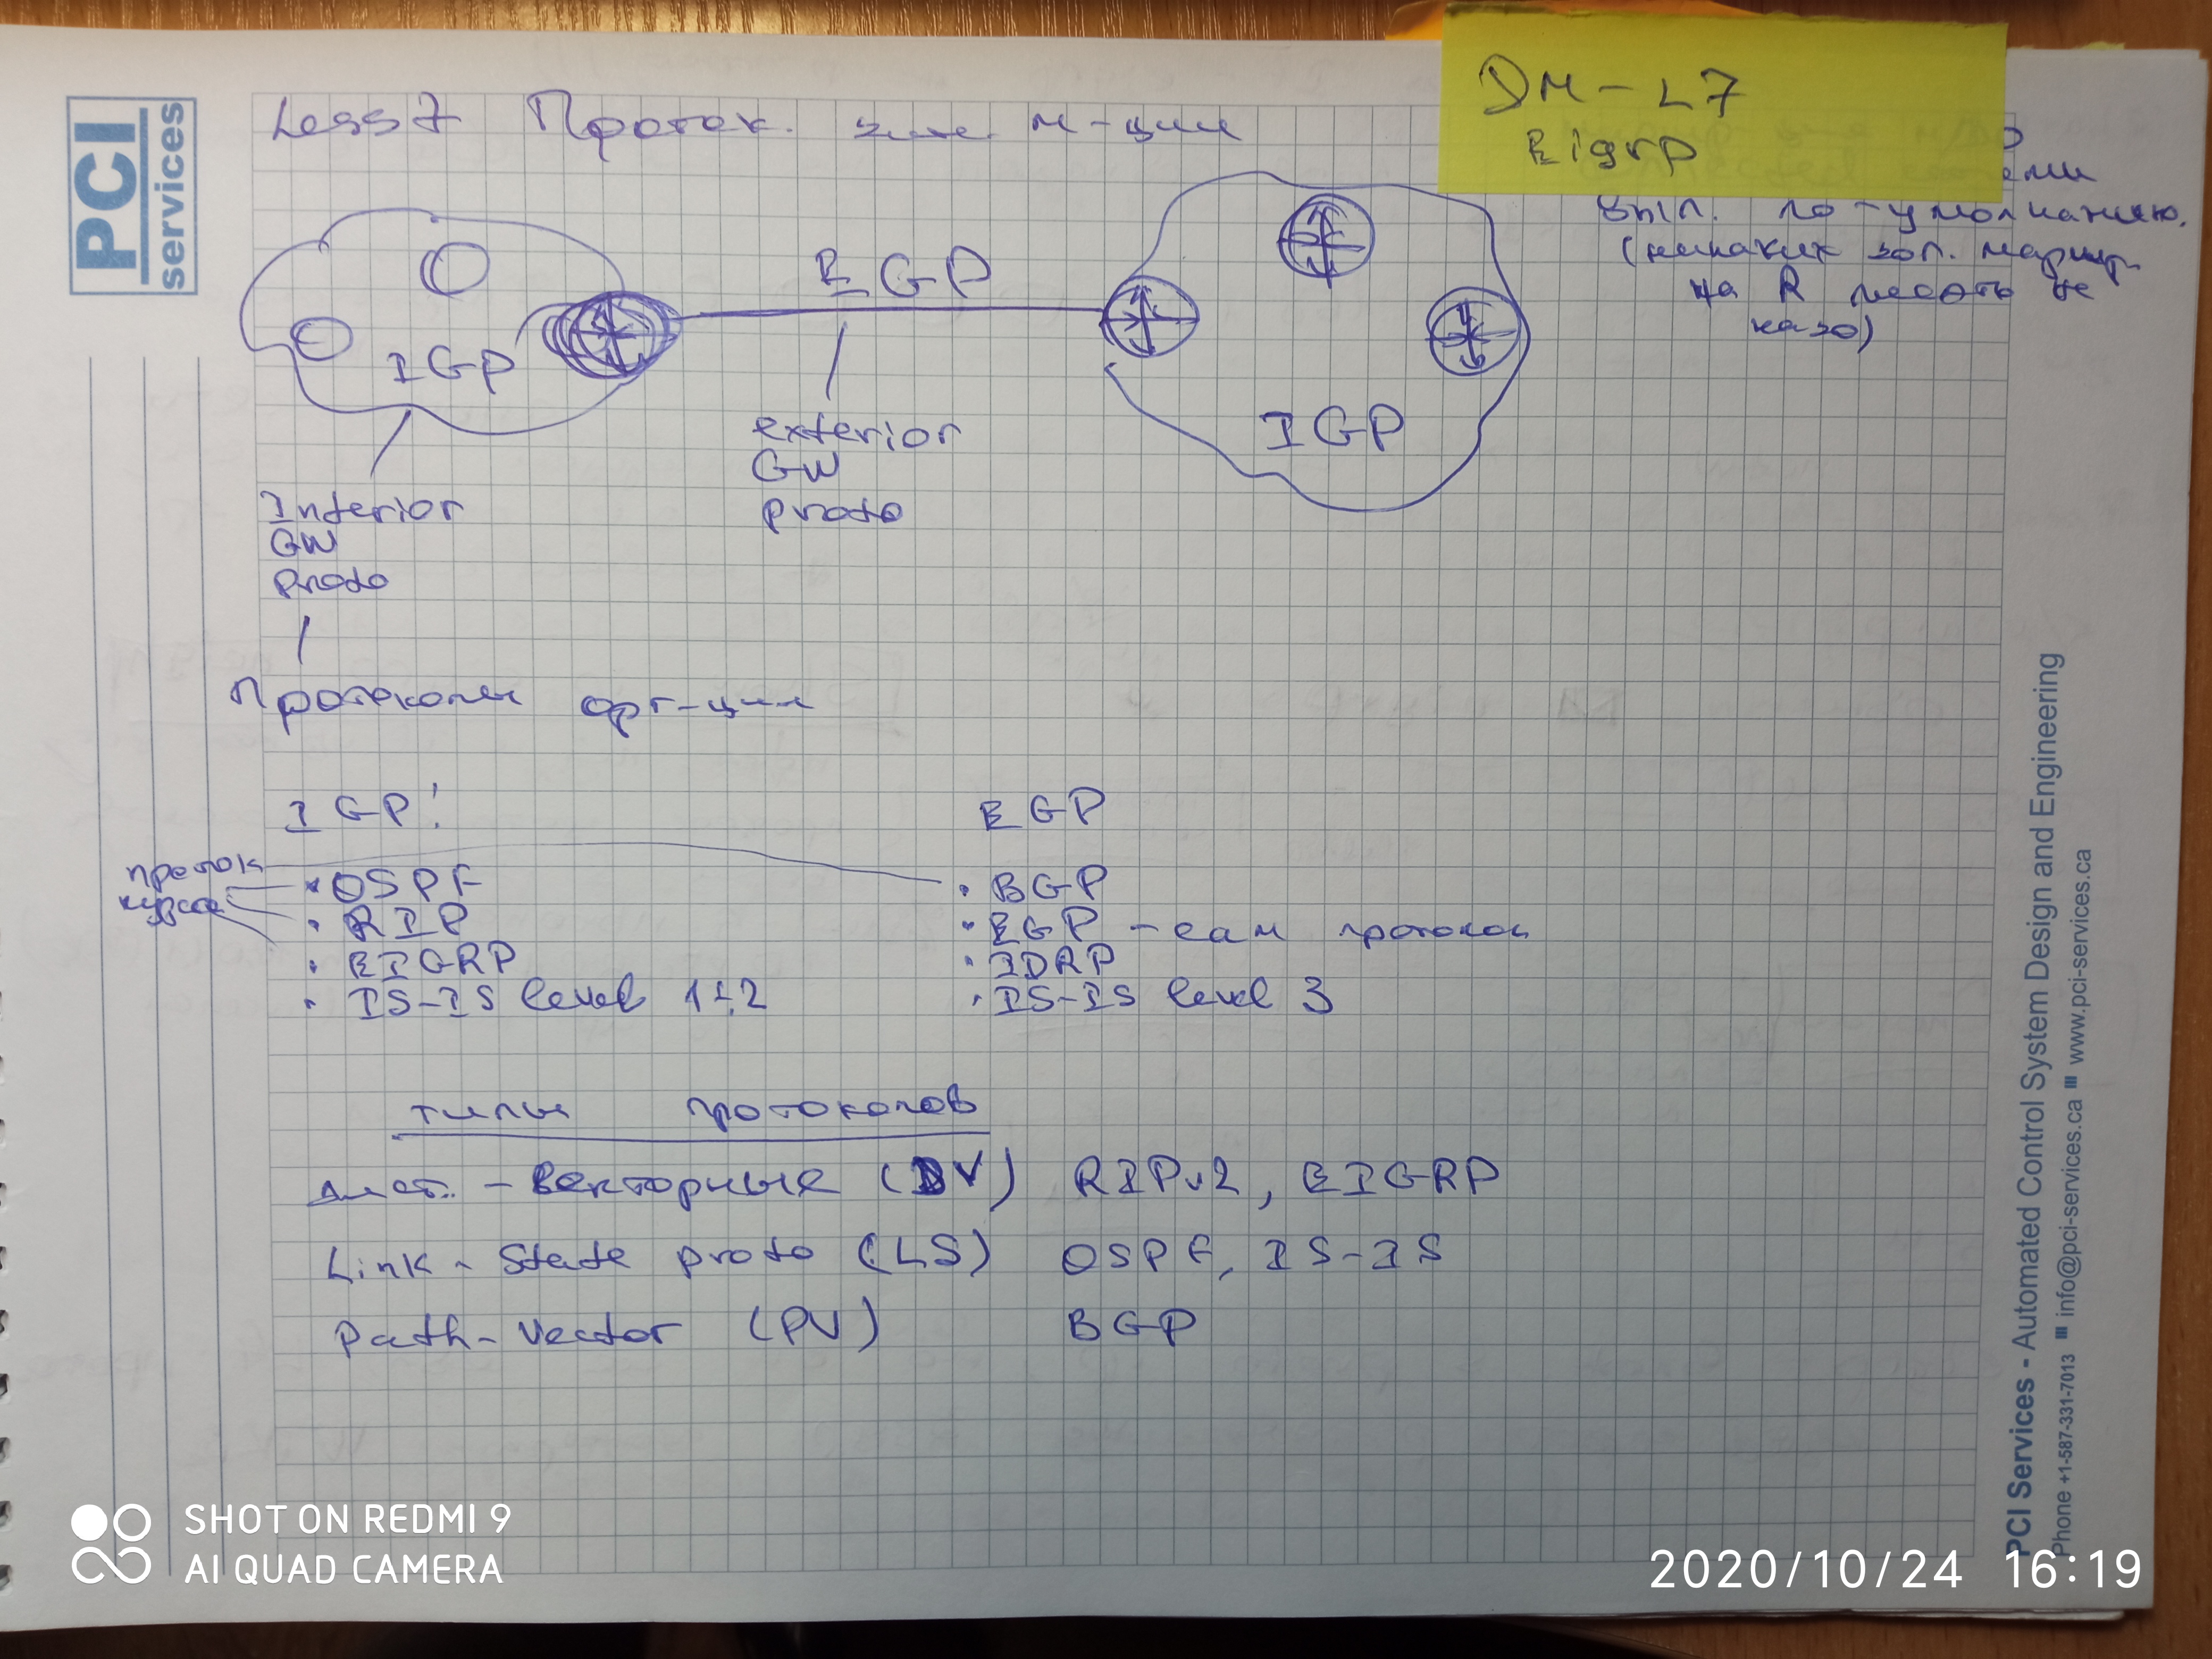 PCI
services
Less 7 Проток. дин. м-ции
DM-L7
Eigrp
вкл. по-умолчанию.
(никаких доп. маршр
на R писать не
надо)
EGP
IGP
IGP
exterior
GW
proto
Interior
GW
proto
Протоколы орг-ции
IGP:
EGP
проток
курса
• OSPF
• RIP
• EIGRP
• IS-IS level 1 2
• BGP
• EGP - сам протокол
• IDRP
• IS-IS level 3
типы протоколов
дист. - векторные (DV) RIPv2, EIGRP
Link-State proto (LS) OSPF, IS-IS
Path-vector (PV) BGP
PCI Services - Automated Control System Design and Engineering
Phone +1-587-331-7013 ■ info@pci-services.ca ■ www.pci-services.ca
SHOT ON REDMI 9
AI QUAD CAMERA
2020/10/24 16:19